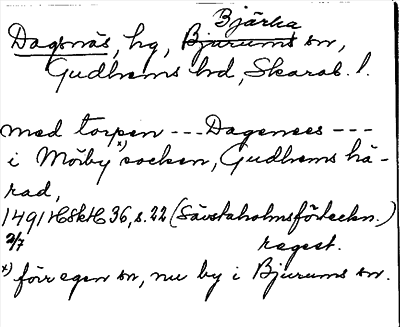 Bjärka
Dagsnäs, hg, Bjurums sn,
Gudhems hd, Skarab. l.
med torpen --- Dagenees ---
i Mörby x) socken, Gudhems hä-
rad,
1491 HSkH 36, s. 22 (Sävstaholmsförteckn.)
2/7 regest.
x) förr egen sn, nu by i Bjurums sn.